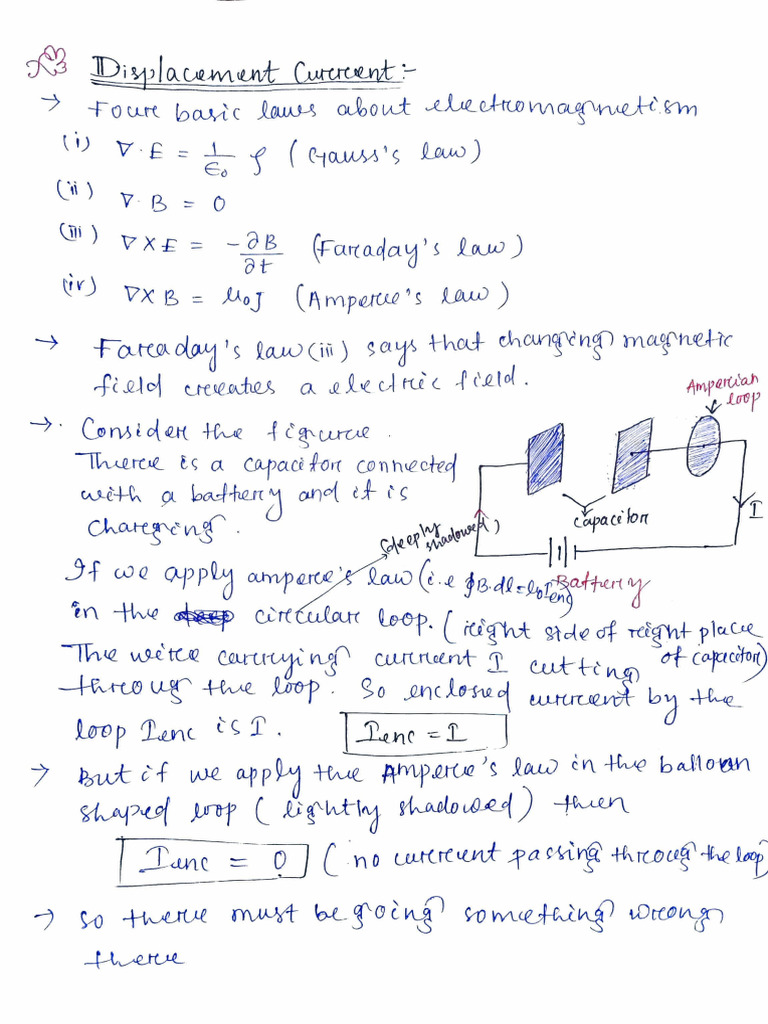 Displacement Current :-
→ Four basic laws about electromagnetism
(i) ∇·E = 1/ϵ₀ ρ (Gauss's law)
(ii) ∇·B = 0
(iii) ∇×E = -∂B/∂t (Faraday's law)
(iv) ∇×B = μ₀J (Ampere's law)
→ Faraday's law (iii) says that changing magnetic
field creates a electric field.
→ Consider the figure.
There is a capacitor connected
with a battery and it is
Charging.
Amperian
loop
capacitor
I
Battery
(deeply
shadowed)
If we apply ampere's law (i.e ∮B.dl=μ₀Ienc)
in the circular loop. (right side of right place
of capacitor)
The wire carrying current I cutting
through the loop. So enclosed current by the
loop Ienc is I. Ienc = I
→ But if we apply the Ampere's law in the balloon
shaped loop (lightly shadowed) then
Ienc = 0 (no current passing through the loop)
→ so there must be going something wrong
there